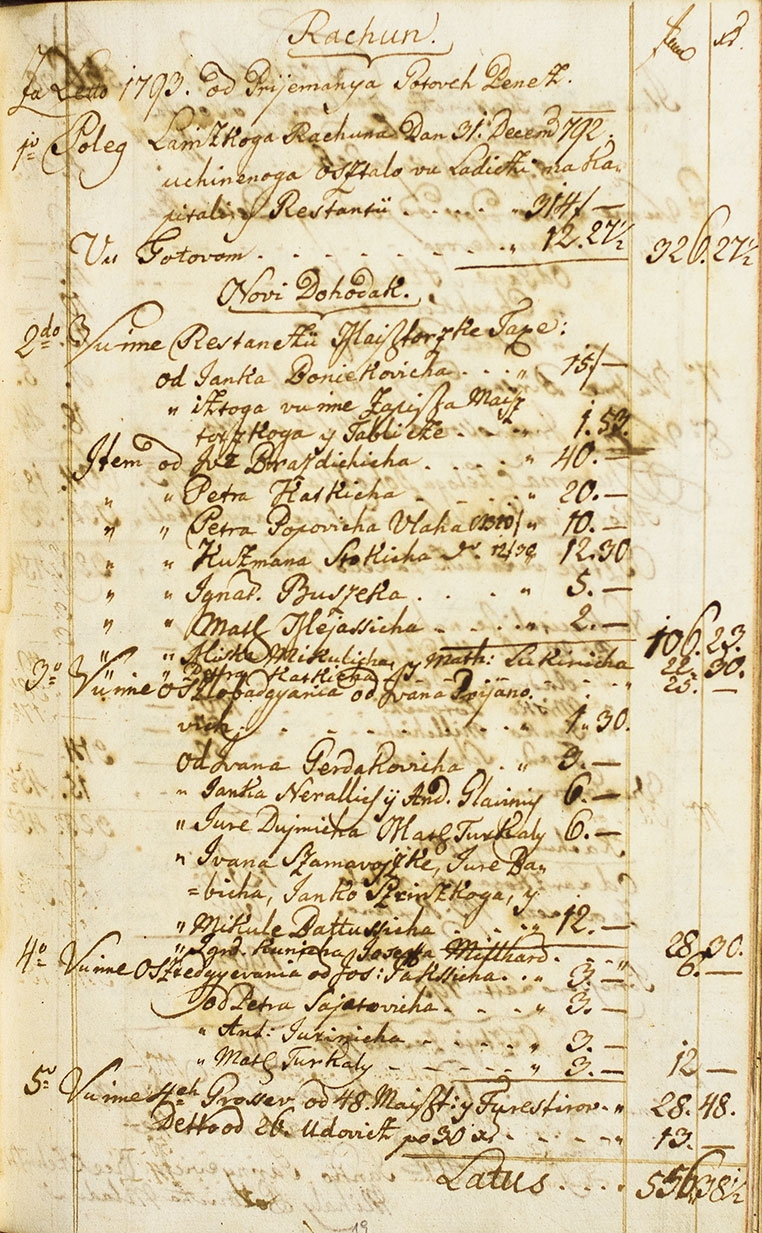 Rachun. fl. xr.
Za Letto 1793. od Prijemanya Gotoveh Penez.
1o Poleg Lainzkoga Rachuna Dan 31. Decemb 792.
uchinenoga osztalo vu Ladiczi na Ka-
pitali y Restantii . . . . . " 314/ —
Vu Gotovom . . . . . . . . " 12.27½ 326.27½
Novi Dohodak.
2do Vu ime Restanczii Maisztorzke Taxe:
od Janka Boniekovicha . . . " 15/ —
" iztoga vu ime Zapisza Maisz
torszkoga y Tablicze . . . " 1.53
Item od Ive Brazdichicha . . . . " 40. —
" " Petra Haskicha . . . . " 20. —
" " Petra Popovicha Vlaha " 10. —
" " Kuzmana Stokicha 12/30 12.30
" " Ignat. Buszeka . . . . " 5. —
" " Matt Mejassicha . . . . " 2. — 106.23.
" " Miske Mikulicha, y Math: Lukinicha 22. 30.
" " Petra Haskicha 25. —
3o Vu ime Oszlobadgyania od Ivana Prijano-
vich . . . . . . . . . " 1. 30.
od Ivana Gerdakovicha . . " 3. —
" Janka Nerallich y And. Glavinij 6. —
" Jure Dujmicha Matt Turkaly 6. —
" Ivana Szamavojzke, Jure Ba-
=bicha, Janko Szrinszkoga, y
" Mikule Battussicha . . . . " 12. — 28.30.
" Ignat. Kunicha Josefa Mitthard . . " 6. —
4o Vu ime Oszredgyevania od Jos: Jakssicha . . " 3. —
od Petra Sajatovicha . . . . " 3. —
" Ant: Jurinicha . . . . " 3. —
" Matt Turkaly . . . . " 3. — 12 —
5o Vu ime Grossev od 48. Maiszt: y Furestirov . " 28. 48.
Detto od 26. Udovicz po 30 xr . . . . " 13. —
Latus . . . . 556.38½
19